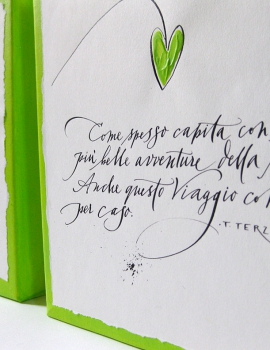 Come spesso capita con
più belle avventure della
Anche questo Viaggio
per caso.
T. TERZ